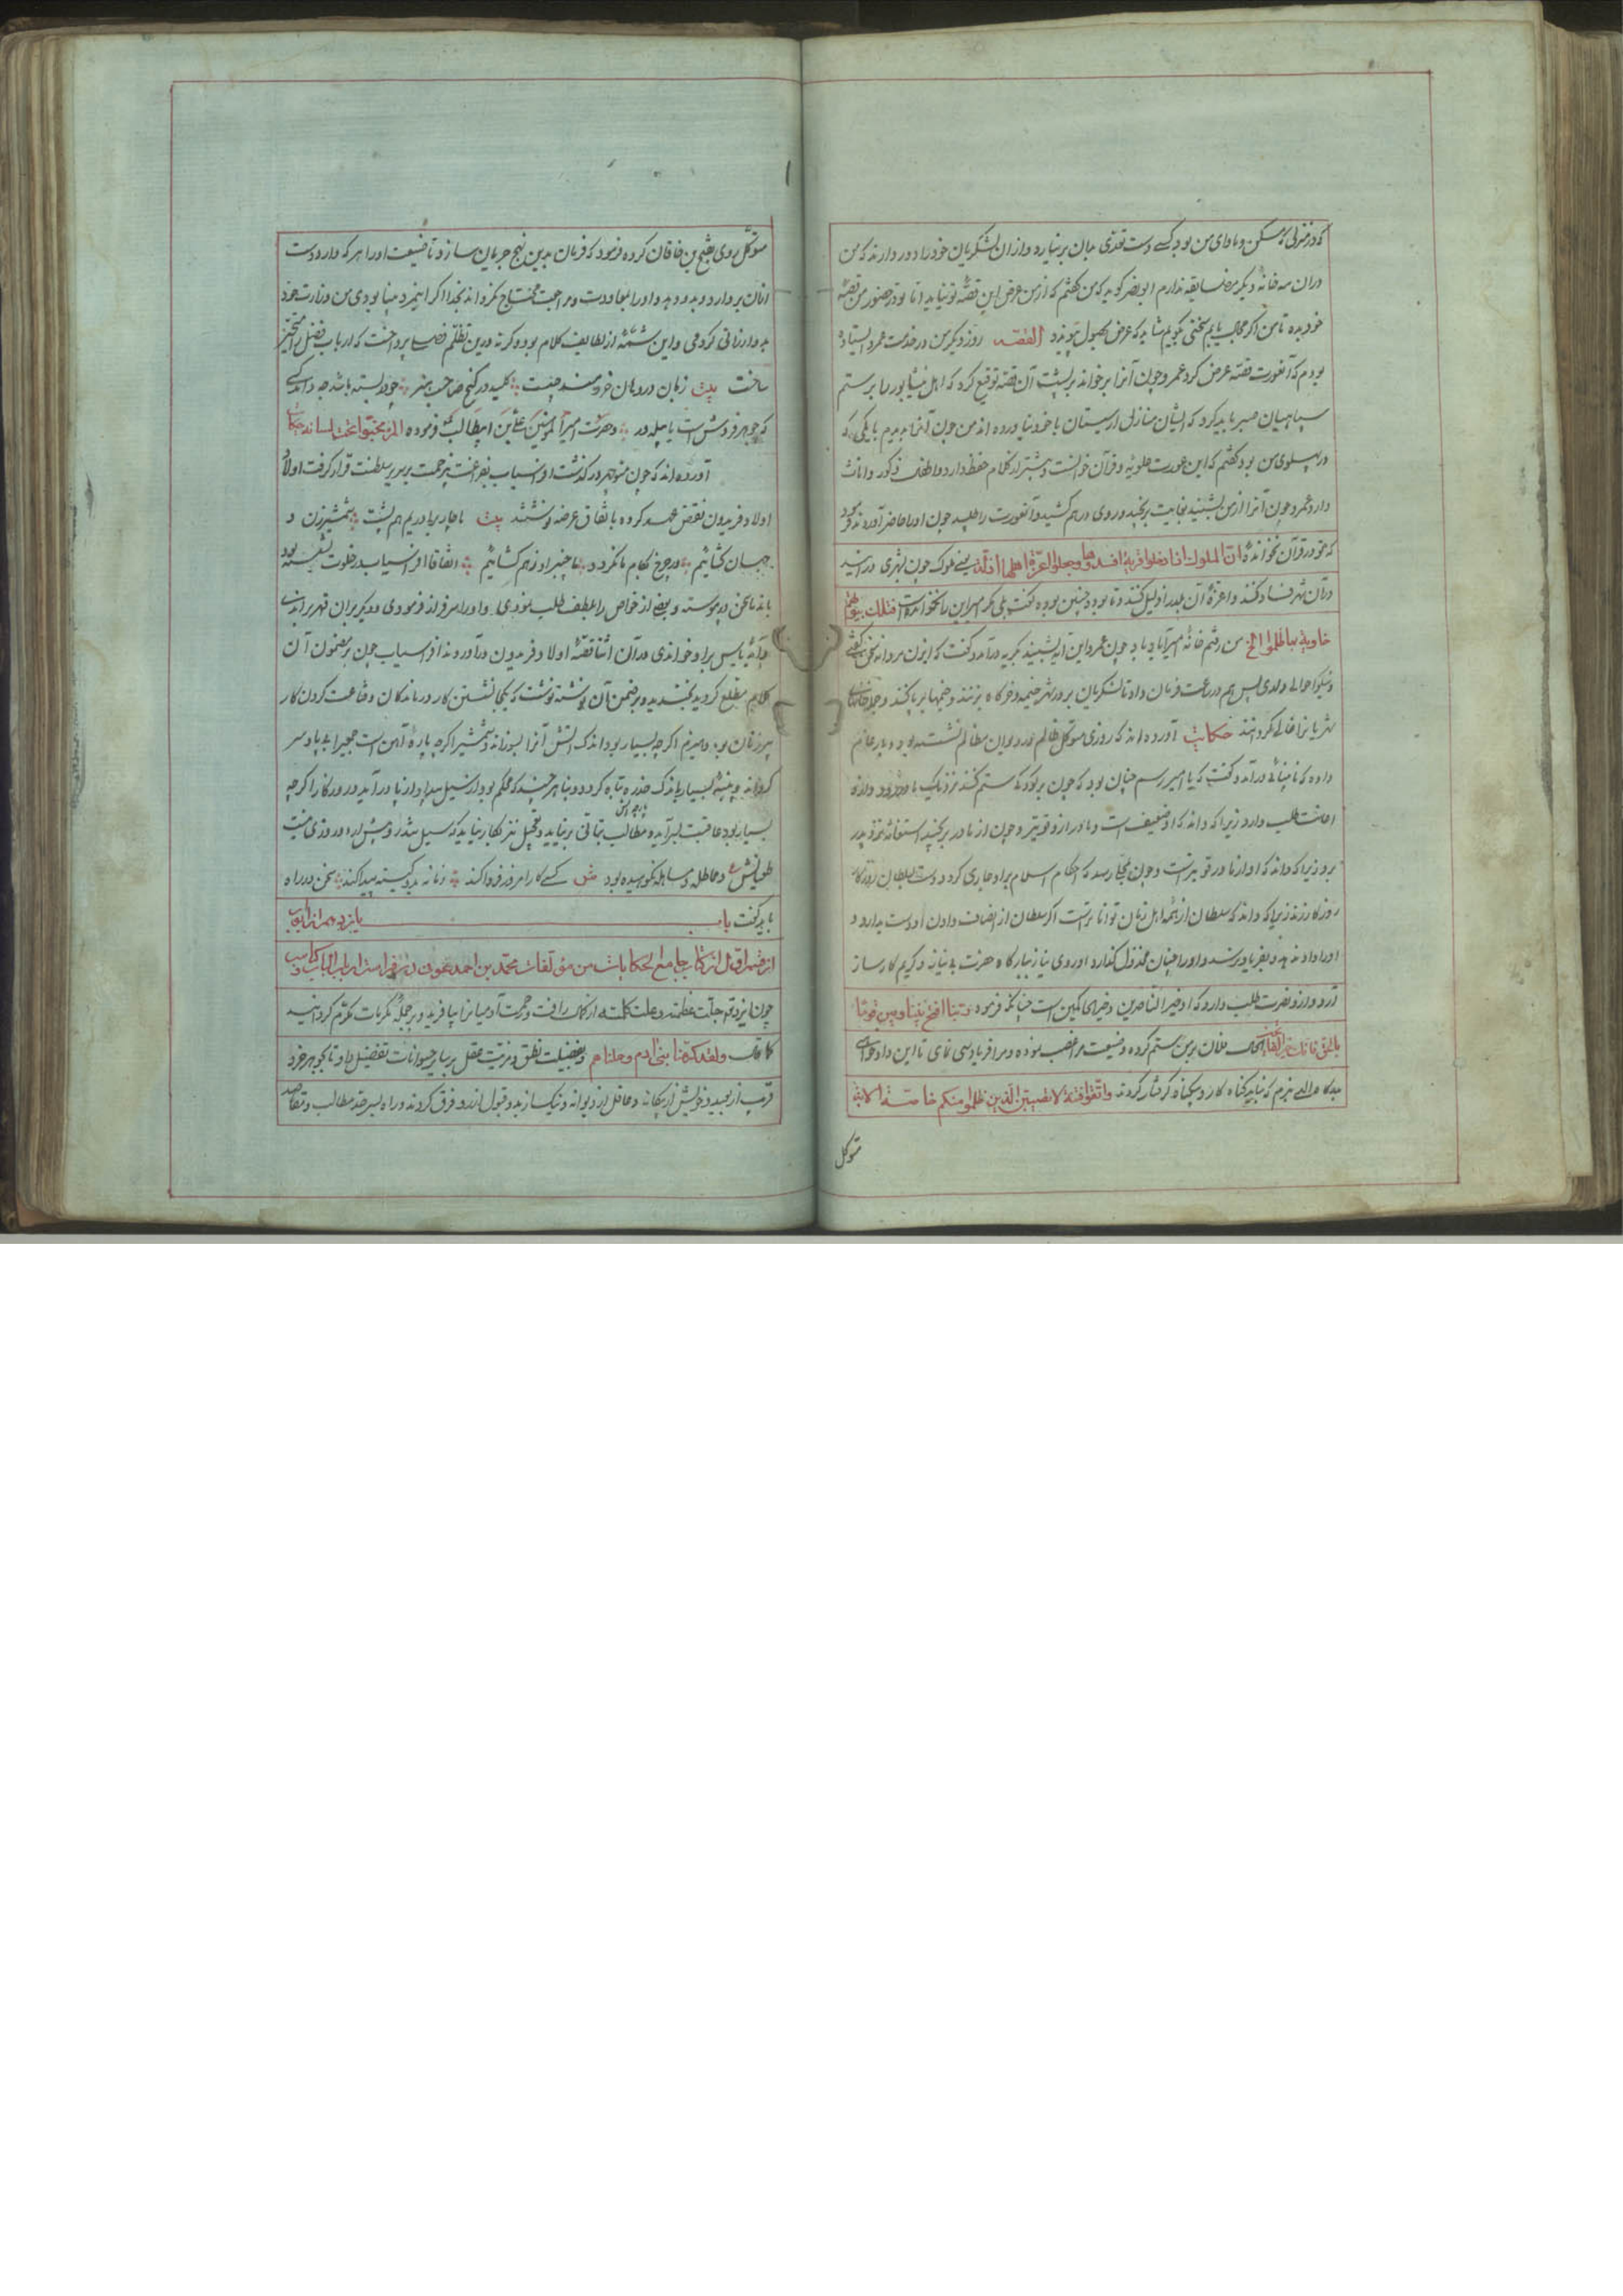 که در منزلی که مسکن و ماوای من بود کسی دست تعدی بدان برنیارد و از ان لشکریان خود را دور دارند که من
دران سه خانه دیگر مضایقه ندارم ابونصر کوید که من گفتم که از من عرض این قصه تو نیاید اما تو در حضور من قصه
خود بده تا من اگر مجال یابم سخنی بگویم شاید که عرض بحصول پیوندد القصه روز دیگر من در خدمت عمرو ایستاده
بودم که آنعورت قصه عرض کرد عمرو چون آنرا برخواند بر پشت آن قصه توقیع کرد که اهل نیشابور را بر ستم
سپاهیان صبر باید کرد که ایشان منازل از سیستان با خود نیاورده اند من چون آنرا بدیدم با یکی که
در پهلوی من بود گفتم که این عورت علویه و قرآن خوانست و بیشتر از کلام حفظ دارد و
دارد عمرو چون آنرا از من بشنید بغایت برنجید و روی درهم کشید و آنعورت را طلبید چون او را حاضر آوردند فرمود
که تو در قرآن نخوانده ان الملوک اذا دخلوا قریة افسدوها وجعلوا اعزة اهلها اذلة یعنی ملوک چون بشهری در آیند
دران شهر فساد کنند و اعزه آن بلد را ذلیل کنند و تا بوده چنین بوده گفت بلی مگر امیر این را نخوانده است فتلک بیوتهم
خاویة بما ظلموا الخ من رفتم خانه امیر آباد باد چون عمرو این آیه بشنید بگریه درآمد و گفت که اینون مردانه سخن گفتی
پس هم در ساعت فرمان داد تا لشکریان بر در شهر خیمه و خرگاه بزنند و خیمها برپا کنند و جمله خانهای
شهریانرا خالی گردانند حکایت آورده اند که روزی متوکل ظالم در دیوان مظالم نشسته بود و بار عام
داده که نابینائی درآمد و گفت که یا امیر رسم چنان بود که چون بر کودکی ستم کنند نزدیک مادر رود و ازو
اعانت طلب دارد زیرا که داند که او ضعیف است و مادر ازو قویتر و چون از مادر برنجید استغاثه نزد پدر
برد زیرا که داند که او از مادر قویتر است و چون بجائی رسد که احکام اسلام بر او جاری گردد دست بسلطان روزگار
روزگار زند زیرا که داند که سلطان از همه اهل زمان توانا تر است اگر سلطان از انصاف دادن او دست بدارد و
او را داد ندهد و بفریاد نرسد و او را چنان مخذول گذارد او روی نیاز ببارگاه حضرت بی نیاز و کریم کارساز
آرد و ازو نصرت طلب دارد که او خیر الناصرین و خیر الحاکمین است چنانکه فرمود ربنا افتح بیننا وبین قومنا
بالحق وانت خیر الفاتحین الحال فلان برمن ستم کرده و ضیعت مرا غصب نموده و مرا فریادرسی نمای تا این داد خود
بدرگاه والی نبرم که نباید گناه کار و بیگناه گرفتار گردند واتقوا فتنة لا تصیبن الذین ظلموا منکم خاصة الایة
متوکل
متوکل روی بفتح بن خاقان کرده فرمود که فرمان بدین نهج جریان سازد تا ضیعت او را هر که دارد دست
ازان بردارد و بدو دهد و او را بمعاودت و مراجعت محتاج نگرداند بخدا اگر این مرد بینا بودی من وزارت خود
بدو ارزانی کردمی و این شمّه از لطایف کلام بوده که نه درین تظلم فصلی پرداخت که ارباب فضل را متحیر
ساخت بیت زبان در دهان خردمند چیست کلید در گنج صاحب هنر چو در بسته باشد چه داند کسی
که جوهر فروش است یا پیله ور و حضرت امیر المؤمنین علی بن ابیطالب که فرموده المرء مخبوا تحت لسانه حکایت
آورده اند که چون منوچهر درگذشت افراسیاب بفراغت بیزحمت بر سریر سلطنت قرار گرفت اولاد
اولاد فریدون نقض عهد کرده باتفاق عرضه نوشتند بیت ما چار برادریم هم پشت شمشیر زن و
جهان گشائیم ور چرخ بکام ما نگردد ما چنبر او ز هم گشائیم اتفاقا افراسیاب در خلوت نشسته بود
با ندما سخن در پیوسته و بعضی از خواص را بلطف طلب نمودی و او را سرفراز فرمودی و دیگریرا بر آن قهر براندی
و آیه یأس برا و خواندی در آن اثنا قصه اولاد فریدون درآوردند افراسیاب چون بر مضمون آن
کلام مطلع گردید بخندید و بر ضمن آن نوشته نوشت که یکجا نشستن کار درماندگان و قناعت کردن کار
پیرزنان بود و هیزم اگرچه بسیار بود اندک آتش آنرا بسوزاند و شمشیر اگرچه پاره آهن است
گرداند و پنبه بسیار باندک جذره تباه گردد و بنا هر چند که محکم بود از سیل بیداد از پا درآید و روزگار اگرچه
بسیار بود عاقبت بسرآید و مطالب بتأنی برنیاید و تعجیل نیز بکار نیاید که
و مماطله و مساهله نکوهیده بود کسی کار امروز فردا کند سخن در راه
باید گفت باب یازدهم از ابواب
از قسم اول از کتاب جامع الحکایات من مؤلفات محمد بن احمد عوفی در فراست ارباب الباب و کیاست
چون ایزد تعالی جلّت عظمته و علت کلمته از کمال رافت و رحمت آدمیانرا بیافرید و بر جمله مکرمات مکرّم گردانید
کما قال ولقد کرمنا بنی آدم وحملناهم و بفضیلت نطق و مزیت عقل بر سایر حیوانات تفضیل داد تا بجوهر خرد
قریب از بعید و خویش از بیگانه و عاقل از دیوانه و نیک از بد و قبول از رد فرق کردند و راه بسرحد مطالب و مقاصد